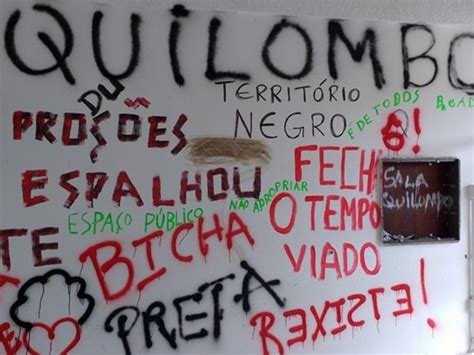 QUILOMBO
DU
PROSÕES
TERRITÓRIO
NEGRO
E DE TODOS
ESPALHOU
FECH
Ô!
SALA
QUILOMPO
ESPAÇO PÚBLICO
NÃO APROPRIAR
O TEMPO
TE
BICHA
VIADO
PRETA
REXISTE!